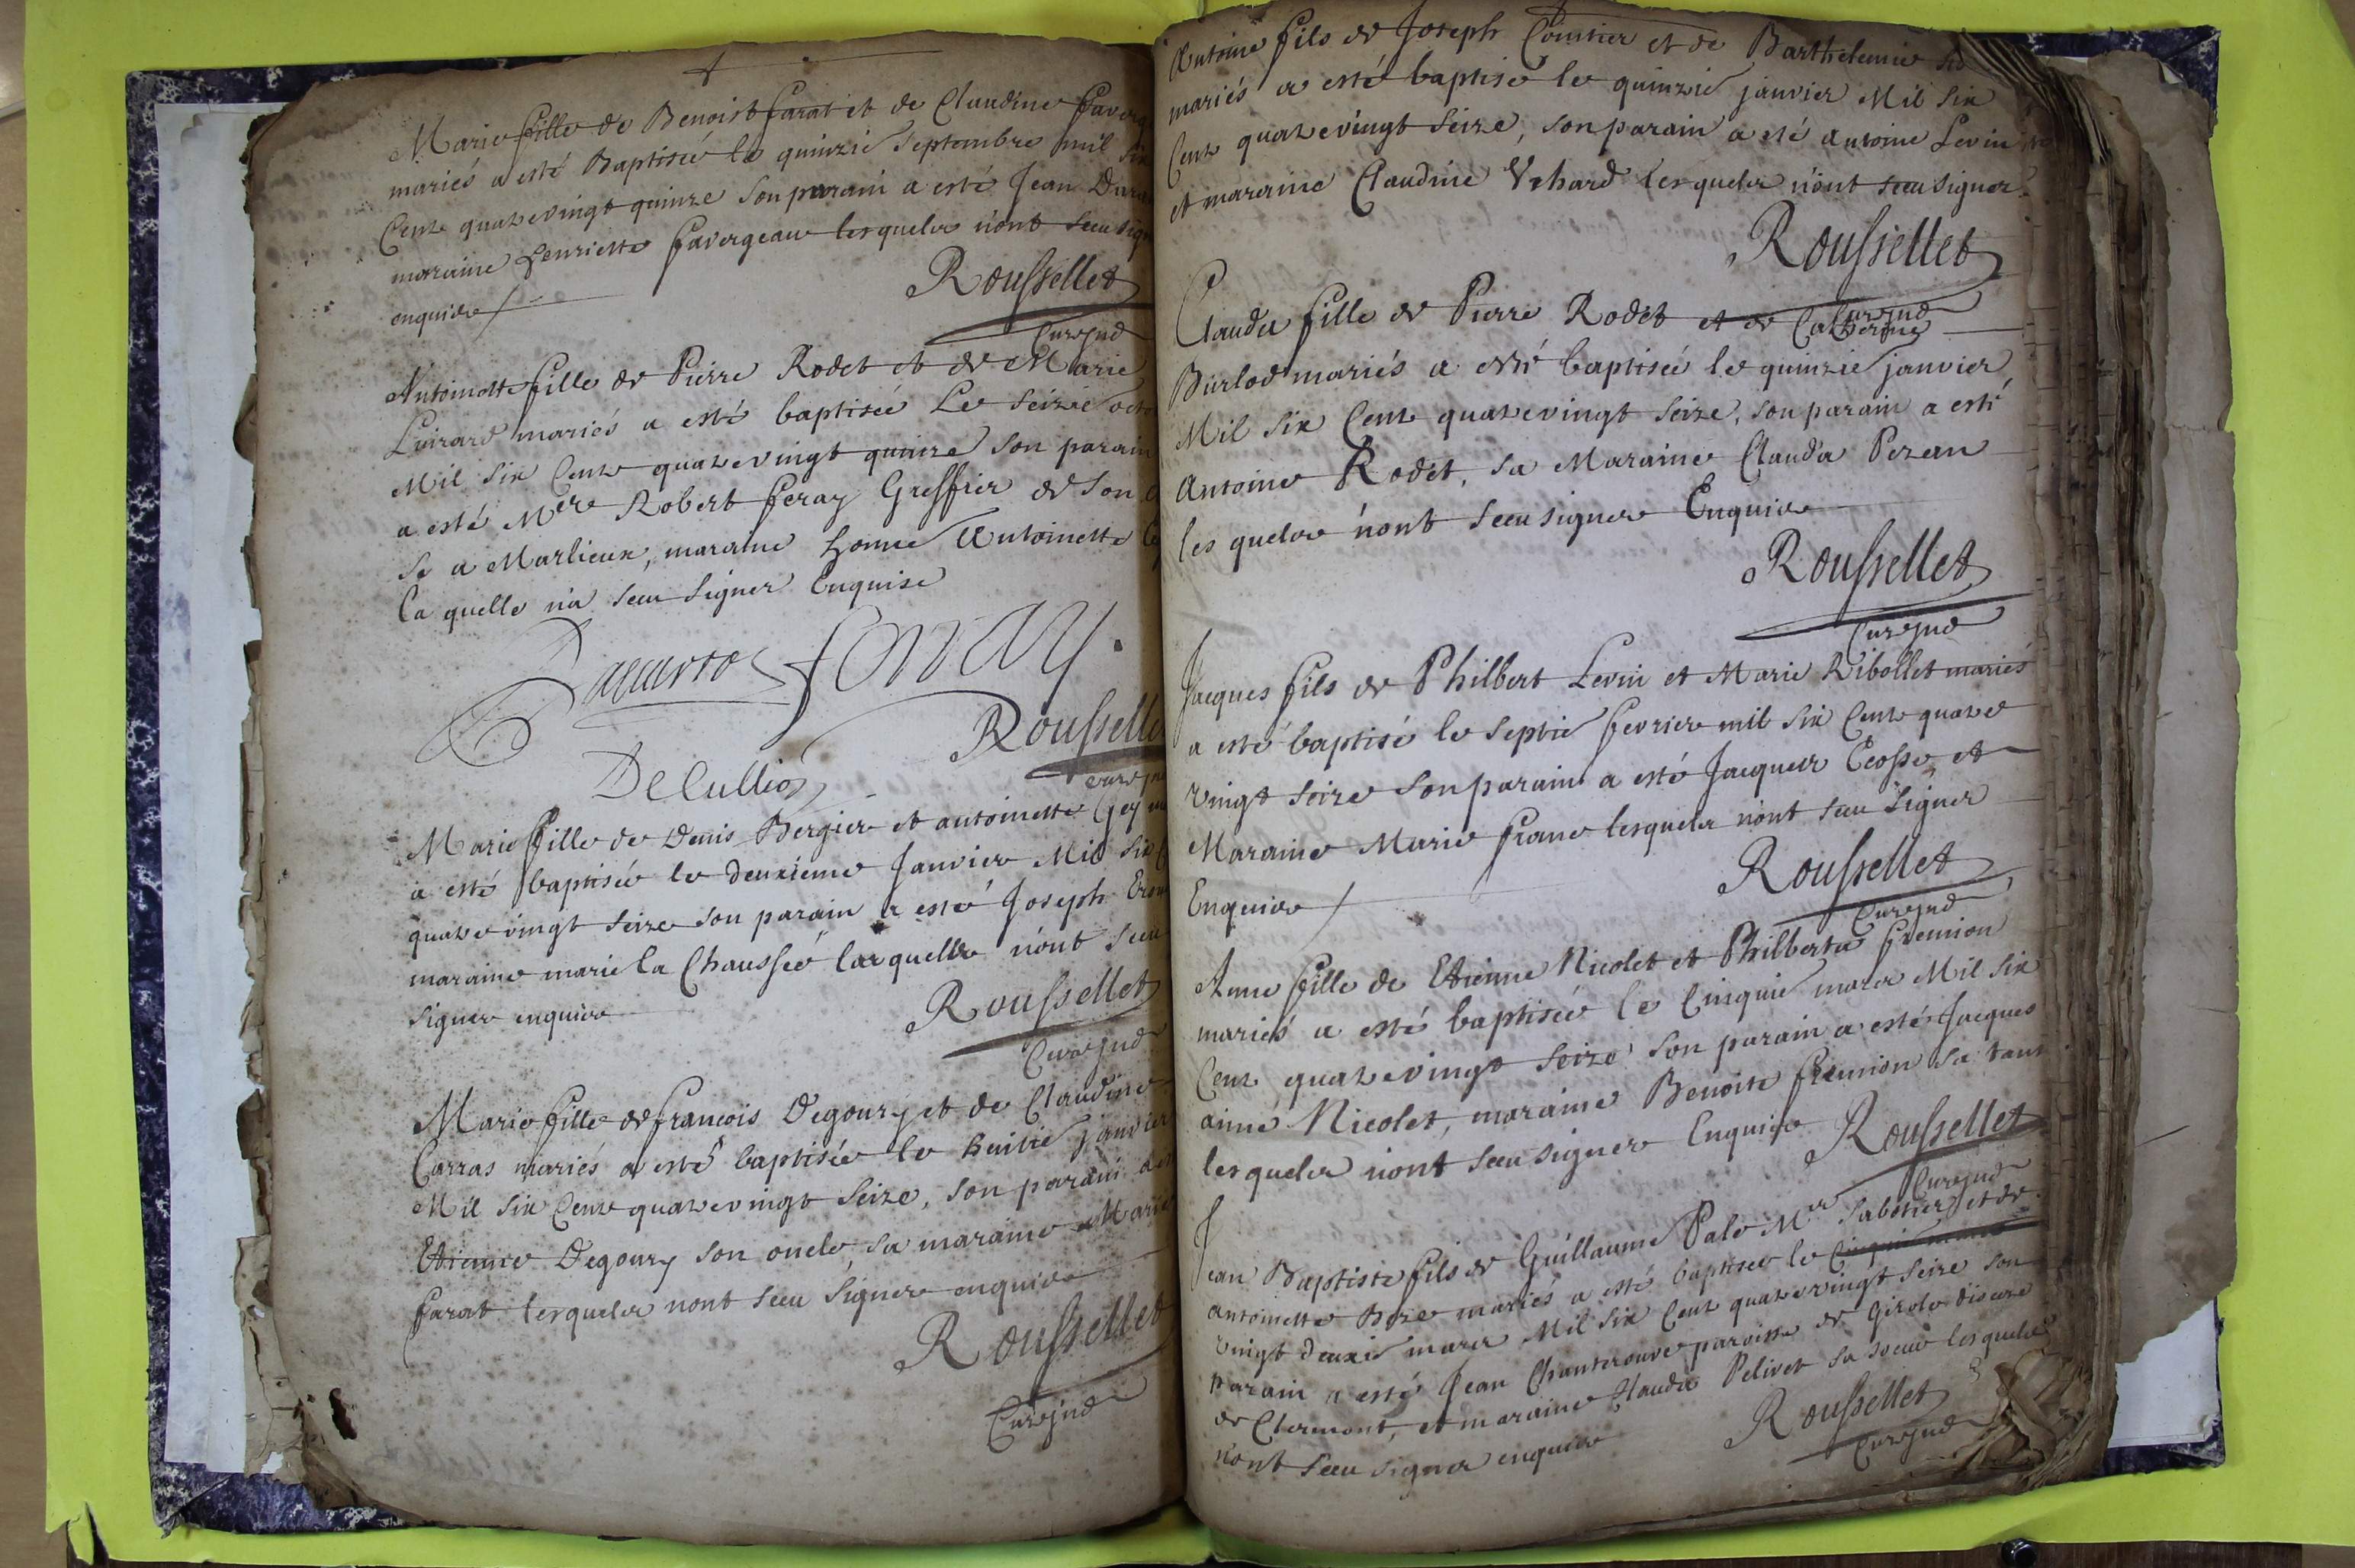 Marie fille de Benoist farat et de Claudine faverg
mariés a esté Baptiseé le quinzie septembre mil six
Cent quatrevingt quinze son parain a esté Jean
maraine henriette favergeau lesquels n'ont sceu sign
enquis
Roussellet
Curé jud
Antoinette fille de Pierre Rodet et de Marie
Luirard mariés a esté baptiseé Le seizie octo
Mil six Cent quatrevingt quinze son parain
a esté Mtre Robert feray Greffier de son
se a Marlieux, maraine honne Antoinette
la quelle n'a sceu signer Enquise
feray
Rousselle
Decullion
curé ju
Marie fille de Denis Bergier et antoinette Gey
a esté baptiseé le deuxieme Janvier Mil six C
quatrevingt seize son parain a esté Joseph
maraine marie la Chausseé lasquelles n'ont sceu
signer enquis
Roussellet
Curé jud
Marie fille de francois Degoury et de Claudine
Carras mariés a esté baptiseé le huitie janvier
Mil six Cent quatrevingt seize, son parain a es
Etienne Degoury son oncle, sa maraine Marie
farat lesquels nont sceu signer enquis
Roussellet
Curé jud
Antoine fils de Joseph Cointier et de Barthelemie
mariés a esté baptisé le quinzie janvier Mil six
Cent quatrevingt seize, son parain a esté Antoine Levin
et maraine Claudine Vehard lesquels n'ont sceu signer
Roussellet
Curé jud
Clauda fille de Pierre Rodet et de Catherine
Burlod mariés a esté baptiseé le quinzie janvier
Mil six Cent quatrevingt seize, son parain a esté
Antoine Rodet, sa Maraine Clauda Pezan
les quels n'ont sceu signer Enquis
Roussellet
Curé jud
Jacques fils de Philbert Levin et Marie Ribollet mariés
a esté baptisé le septie fevrier mil six Cent quatre
vingt seize son parain a esté Jacques Ecosse et
Maraine Marie franc lesquels n'ont sceu signer
Enquis
Roussellet
Curé jud
Anne fille de Etienne Nicolet et Philberta fremion
mariés a esté baptiseé le Cinquie mars Mil six
Cent quatrevingt seize son parain a esté Jacques
aimé Nicolet, maraine Benoite fremion sa tant
lesquels n'ont sceu signer Enquis
Roussellet
Curé jud
Jean Baptiste fils de Guillaume Pale Mtre Sabotier et de
antoinette mariés a esté baptisé le Cinquie mars
vingt deuxie mars Mil six Cent quatrevingt seize son
parain a esté Jean Chanterouve paroisse de Girole
de Clermont, et maraine Clauda Pelivet sa soeur lesquels
n'ont sceu signer enquis
Roussellet
Curé jud